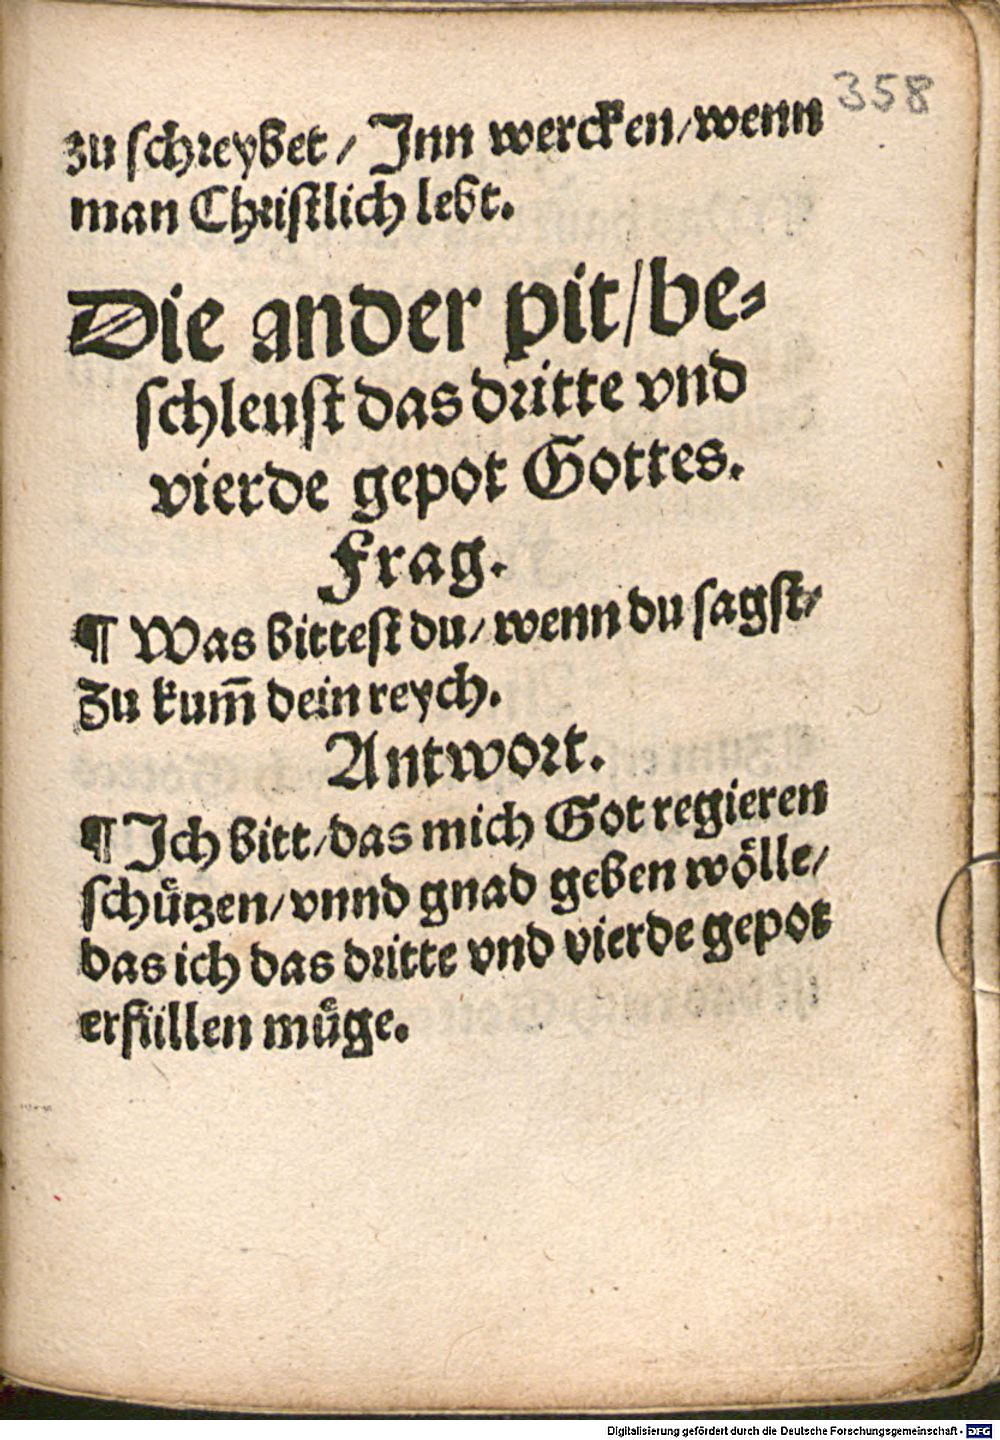 358
zu schreybet / Inn wercken / wenn
man Christlich lebt.
Die ander pit / be⸗
schleust das dritte vnd
vierde gepot Gottes.
Frag.
¶ Was bittest du / wenn du sagst /
Zu kum̄ dein reych.
Antwort.
¶ Ich bitt / das mich Got regieren
schuͤtzen / vnnd gnad geben woͤlle /
das ich das dritte vnd vierde gepot
erfüllen muͤge.
Digitalisierung gefördert durch die Deutsche Forschungsgemeinschaft - DFG